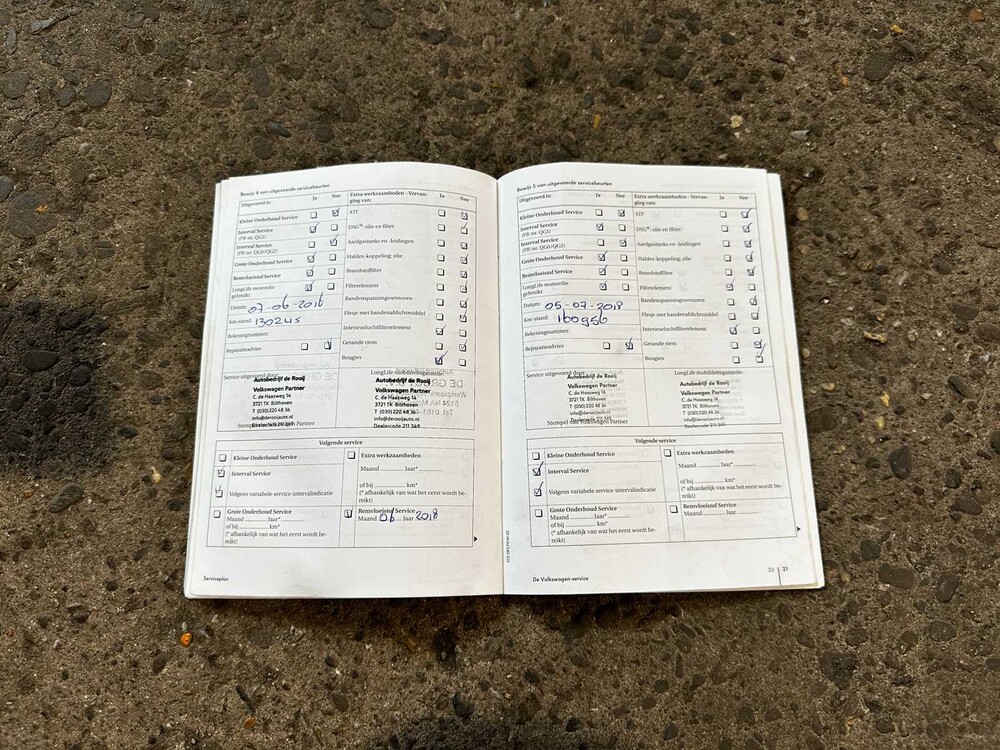 Bewijs 4 van uitgevoerde servicebeurten
Uitgevoerd is: Ja Nee
Kleine Onderhoud Service
Interval Service
(PR-nr. QG1)
Interval Service
(PR-nr. QG0/QG2)
Grote Onderhoud Service
Remvloeistof Service
LongLife motorolie
gebruikt
Datum: 07-06-2016
Km-stand: 130245
Rekeningnummer:
Reparatieadvies
Extra werkzaamheden - Vervan-
ging van: Ja Nee
ATF
DSG®: olie en filter
Aardgastanks en -leidingen
Haldex-koppeling: olie
Brandstoffilter
Filterelement
Bandenspanningssensoren
Flesje met bandenafdichtmiddel
Interieurluchtfilterelement
Getande riem
Bougies
Service uitgevoerd door:
Autobedrijf de Rooij
Volkswagen Partner
C. de Haasweg 14
3721 TK Bilthoven
T (030) 220 48 36
info@derooijauto.nl
Dealercode 211 349
Stempel van Volkswagen Partner
LongLife mobiliteitsgarantie:
Autobedrijf de Rooij
Volkswagen Partner
C. de Haasweg 14
3721 TK Bilthoven
T (030) 220 48 36
info@derooijauto.nl
Dealercode 211 349
Volgende service
Kleine Onderhoud Service
Interval Service
Volgens variabele service-intervalindicatie
Grote Onderhoud Service
Maand ........ Jaar* ........
of bij ........ km*
(* afhankelijk van wat het eerst wordt be-
reikt)
Extra werkzaamheden
Maand ........ Jaar* ........
of bij ........ km*
(* afhankelijk van wat het eerst wordt be-
reikt)
Remvloeistof Service
Maand 06 Jaar 2018
Serviceplan
Bewijs 5 van uitgevoerde servicebeurten
Uitgevoerd is: Ja Nee
Kleine Onderhoud Service
Interval Service
(PR-nr. QG1)
Interval Service
(PR-nr. QG0/QG2)
Grote Onderhoud Service
Remvloeistof Service
LongLife motorolie
gebruikt
Datum: 05-07-2018
Km-stand: 160956
Rekeningnummer:
Reparatieadvies
Extra werkzaamheden - Vervan-
ging van: Ja Nee
ATF
DSG®: olie en filter
Aardgastanks en -leidingen
Haldex-koppeling: olie
Brandstoffilter
Filterelement
Bandenspanningssensoren
Flesje met bandenafdichtmiddel
Interieurluchtfilterelement
Getande riem
Bougies
Service uitgevoerd door:
Autobedrijf de Rooij
Volkswagen Partner
C. de Haasweg 14
3721 TK Bilthoven
T (030) 220 48 36
info@derooijauto.nl
Dealercode 211 349
Stempel van Volkswagen Partner
LongLife mobiliteitsgarantie:
Autobedrijf de Rooij
Volkswagen Partner
C. de Haasweg 14
3721 TK Bilthoven
T (030) 220 48 36
info@derooijauto.nl
Dealercode 211 349
Volgende service
Kleine Onderhoud Service
Interval Service
Volgens variabele service-intervalindicatie
Grote Onderhoud Service
Maand ........ Jaar* ........
of bij ........ km*
(* afhankelijk van wat het eerst wordt be-
reikt)
Extra werkzaamheden
Maand ........ Jaar* ........
of bij ........ km*
(* afhankelijk van wat het eerst wordt be-
reikt)
Remvloeistof Service
Maand ........ Jaar ........
De Volkswagen-service
20 21